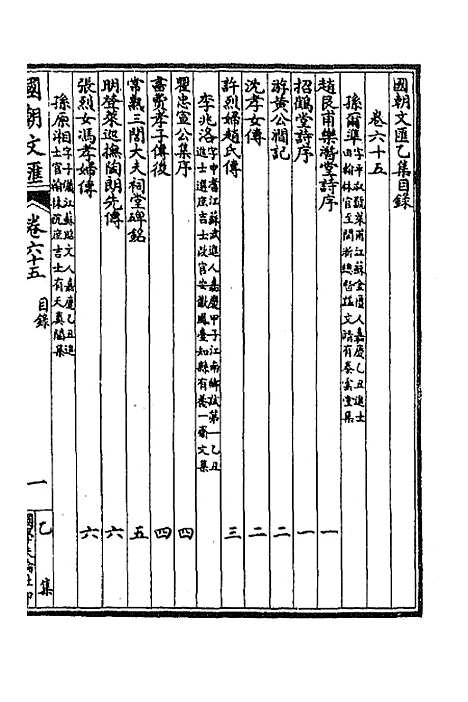 國朝文匯乙集目錄
卷六十五
孫爾準字平叔號萊甫江蘇金匱人嘉慶乙丑進士由翰林官至閩浙總督諡文靖有泰雲堂集
趙艮甫樂潛堂詩序 一
招鶴堂詩序 一
游黃公澗記 二
沈孝女傳 二
許烈婦趙氏傳 三
李兆洛字申耆江蘇武進人嘉慶甲子江南鄉試第一乙丑進士選庶吉士改官安徽鳳臺知縣有養一齋文集
瞿忠宣公集序 四
書賈孝子傳後 四
常熟三閭大夫祠堂碑銘 五
明登萊巡撫陶朗先傳 六
張烈女馮孝婦傳 六
孫原湘字子瀟江蘇昭文人嘉慶乙丑進士官翰林院庶吉士有天真閣集
國朝文匯 卷六十五 目錄 一 乙集
國學扶輪社印